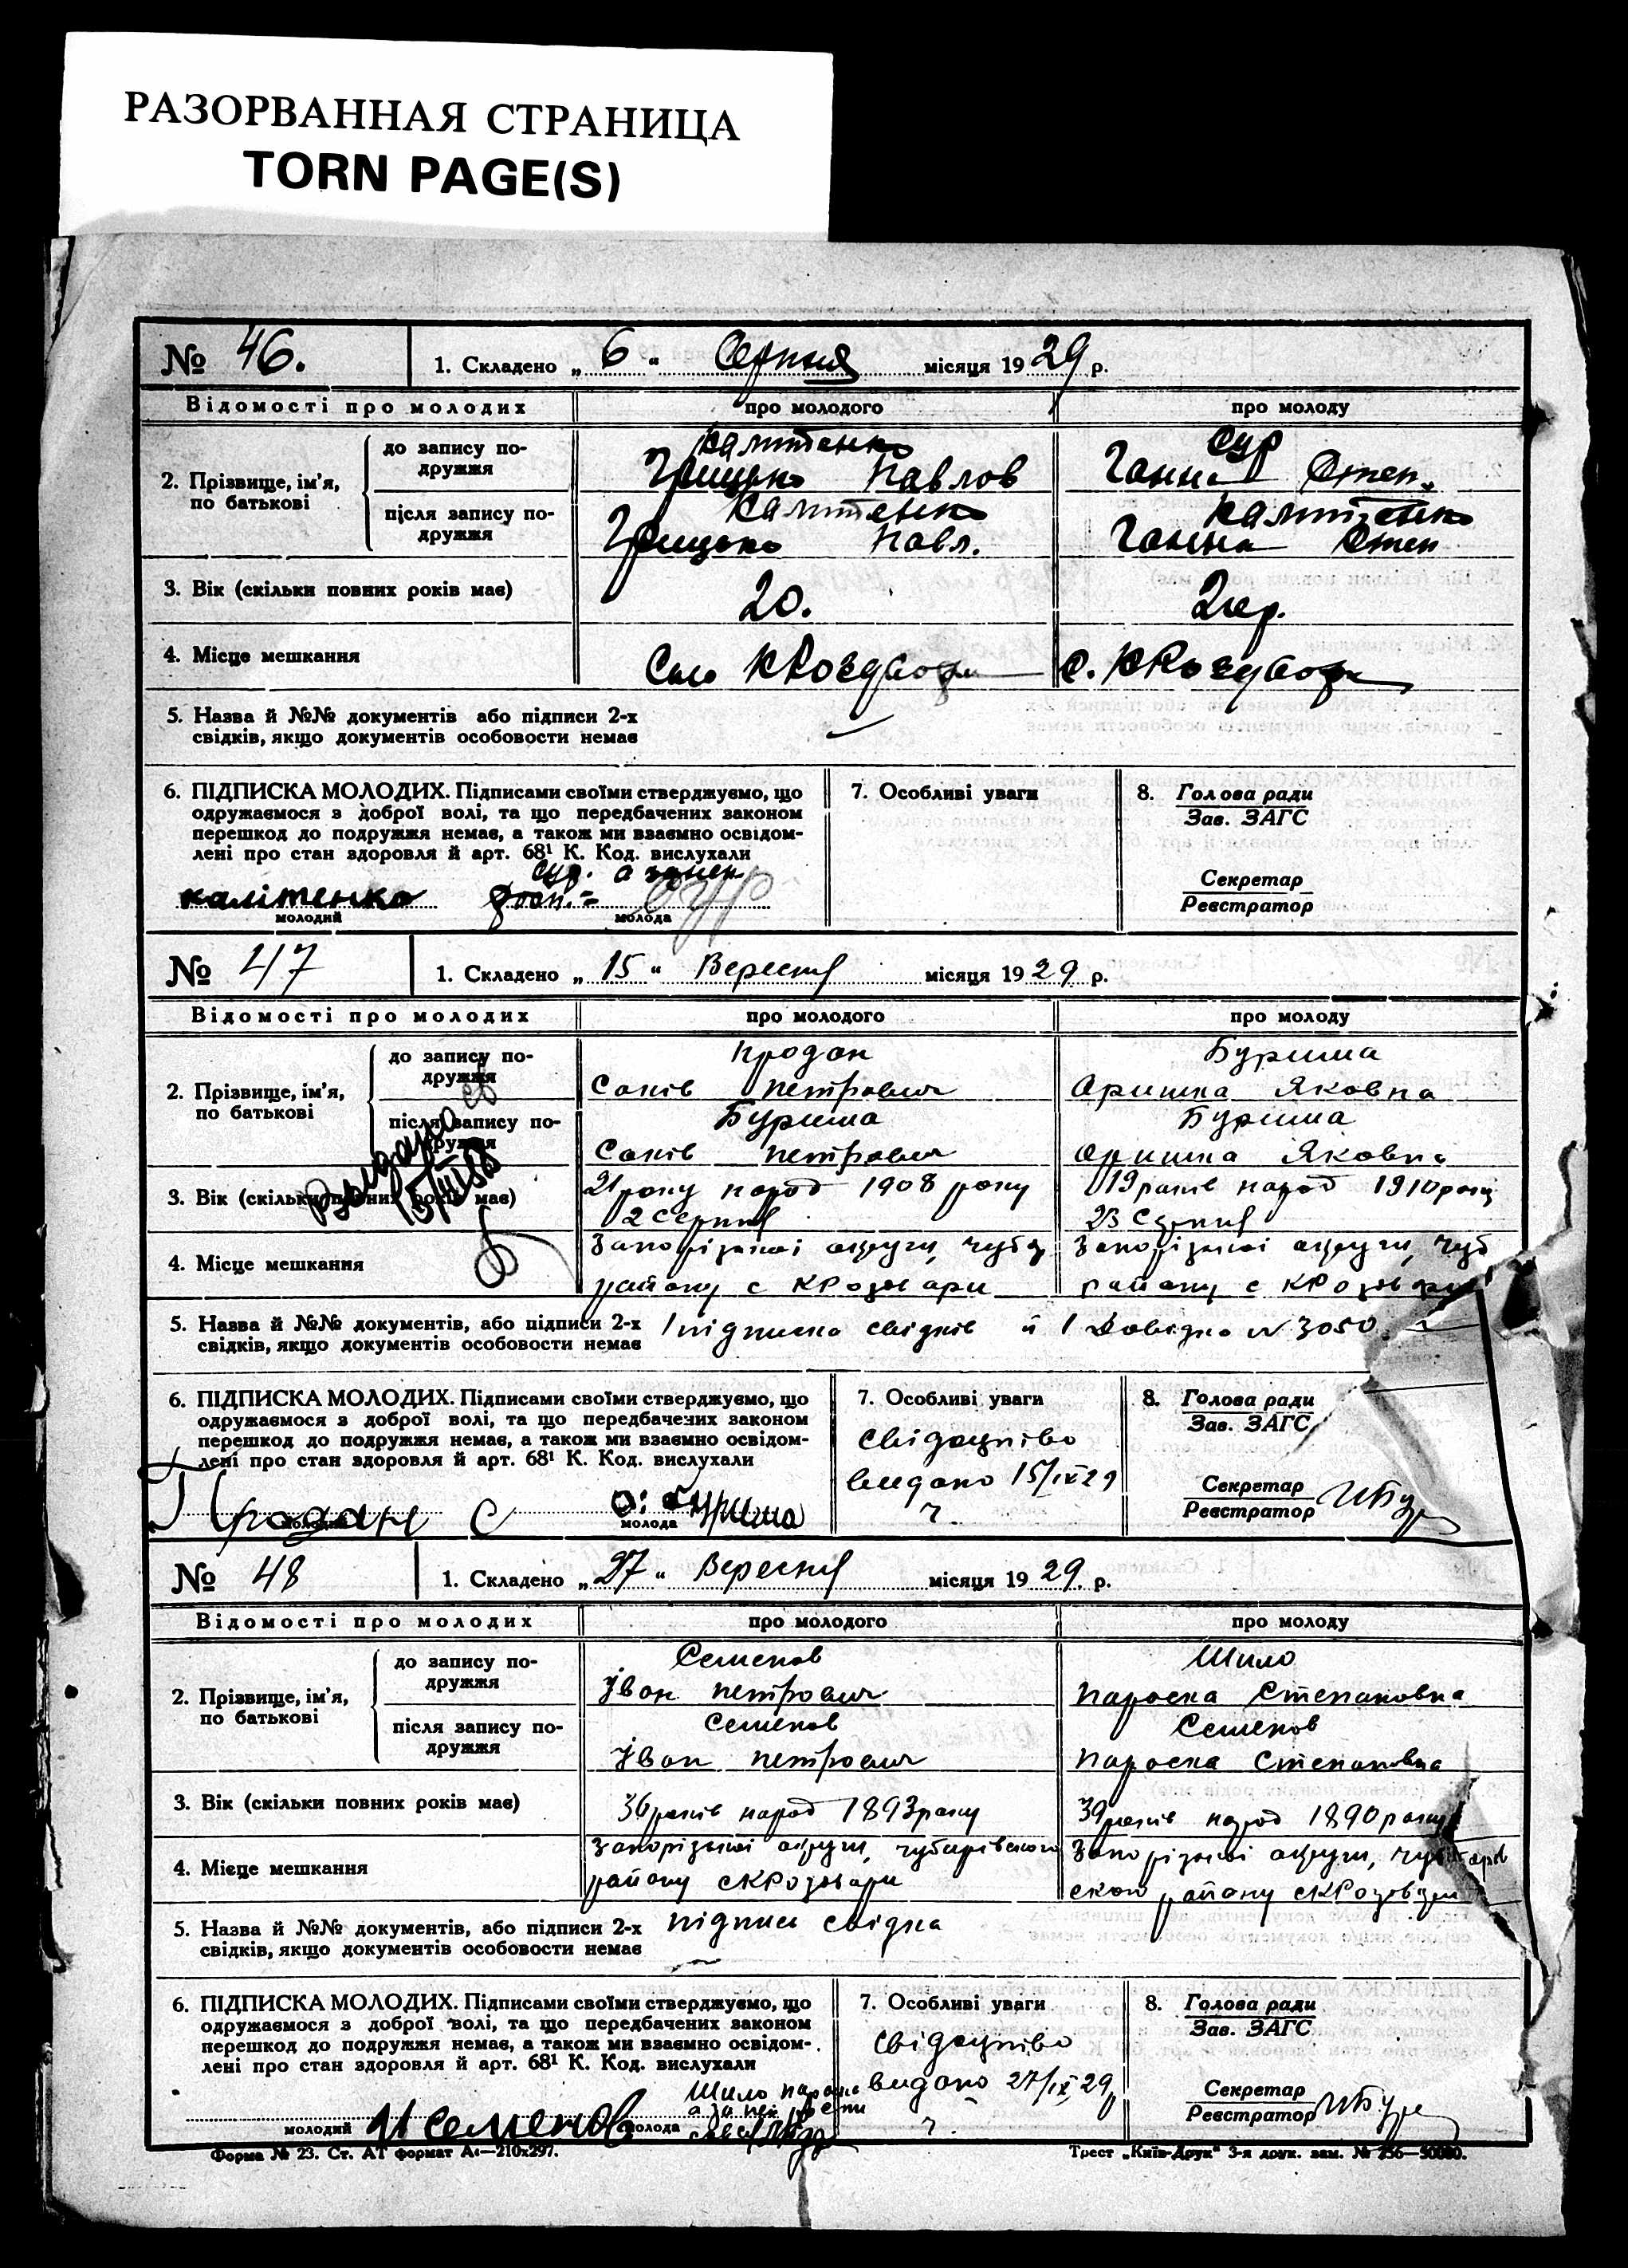 РАЗОРВАННАЯ СТРАНИЦА
TORN PAGE(S)
№ 46. 1. Складено „ 6 “ Серпня місяця 19 29 р.
Відомості про молодих про молодого про молоду
2. Прізвище, ім’я, по батькові
до запису подружжя
Калитенко Сур
Грицько Павлов Ганна Степ.
після запису подружжя
Калитенко Калитенко
Грицько Павл. Ганна Степ
3. Вік (скільки повних років має) 20.
4. Місце мешкання Село КРоздори с. КРоздори
5. Назва й №№ документів або підписи 2-х
свідків, якщо документів особовости немає
6. ПІДПИСКА МОЛОДИХ. Підписами своїми стверджуємо, що
одружаємося з доброї волі, та що передбачених законом
перешкод до подружжя немає, а також ми взаємно освідом-
лені про стан здоровля й арт. 68¹ К. Код. вислухали
калітенко Сур
молодий молода
7. Особливі уваги
8. Голова ради
Зав. ЗАГС
Секретар
Реєстратор
№ 47 1. Складено „ 15 “ Вересня місяця 19 29 р.
Відомості про молодих про молодого про молоду
2. Прізвище, ім’я, по батькові
до запису по-
дружжя
Продан Буриша
петрович Оришка Яковна
після запису по-
дружжя
Буриша Буриша
петрович Оришка Яковна
3. Вік (скільки повних років має) 21 року народ 1908 року 19 років народ 1910 року
2 Серпня 23 Серпня
4. Місце мешкання Запорізької округи, чуб Запорізької округи, чуб
району с КРоздори району с КРоздори
5. Назва й №№ документів, або підписи 2-х 1 підписка свідків й 1 Довідка N 3050
свідків, якщо документів особовости немає
6. ПІДПИСКА МОЛОДИХ. Підписами своїми стверджуємо, що
одружаємося з доброї волі, та що передбачених законом
перешкод до подружжя немає, а також ми взаємно освідом-
лені про стан здоровля й арт. 68¹ К. Код. вислухали
Продан С О. Буриша
молодий молода
7. Особливі уваги
свідоцтво
видано 15/ІХ 29
8. Голова ради
Зав. ЗАГС
Секретар
Реєстратор
№ 48 1. Складено „ 27 “ Вересня місяця 19 29 р.
Відомості про молодих про молодого про молоду
2. Прізвище, ім’я, по батькові
до запису по-
дружжя
Семенов Шило
Іван петрович Параска Степановна
після запису по-
дружжя
Семенов Семенов
Іван петрович Параска Степановна
3. Вік (скільки повних років має) 36 років народ 1893 року 39 років народ 1890 року
4. Місце мешкання Запорізької округи, чубарівського Запорізької округи, чубарів
району с КРоздори ского району с КРоздори
5. Назва й №№ документів, або підписи 2-х підпись свідка
свідків, якщо документів особовости немає
6. ПІДПИСКА МОЛОДИХ. Підписами своїми стверджуємо, що
одружаємося з доброї волі, та що передбачених законом
перешкод до подружжя немає, а також ми взаємно освідом-
лені про стан здоровля й арт. 68¹ К. Код. вислухали
Шило
И Семенов
молодий молода
7. Особливі уваги
свідоцтво
видано 27/ІХ 29
8. Голова ради
Зав. ЗАГС
Секретар
Реєстратор
Форма № 23. Ст. АТ формат А₄—210х297. Трест „Київ-Друк“ 3-я друк. зам. № 256—50000.